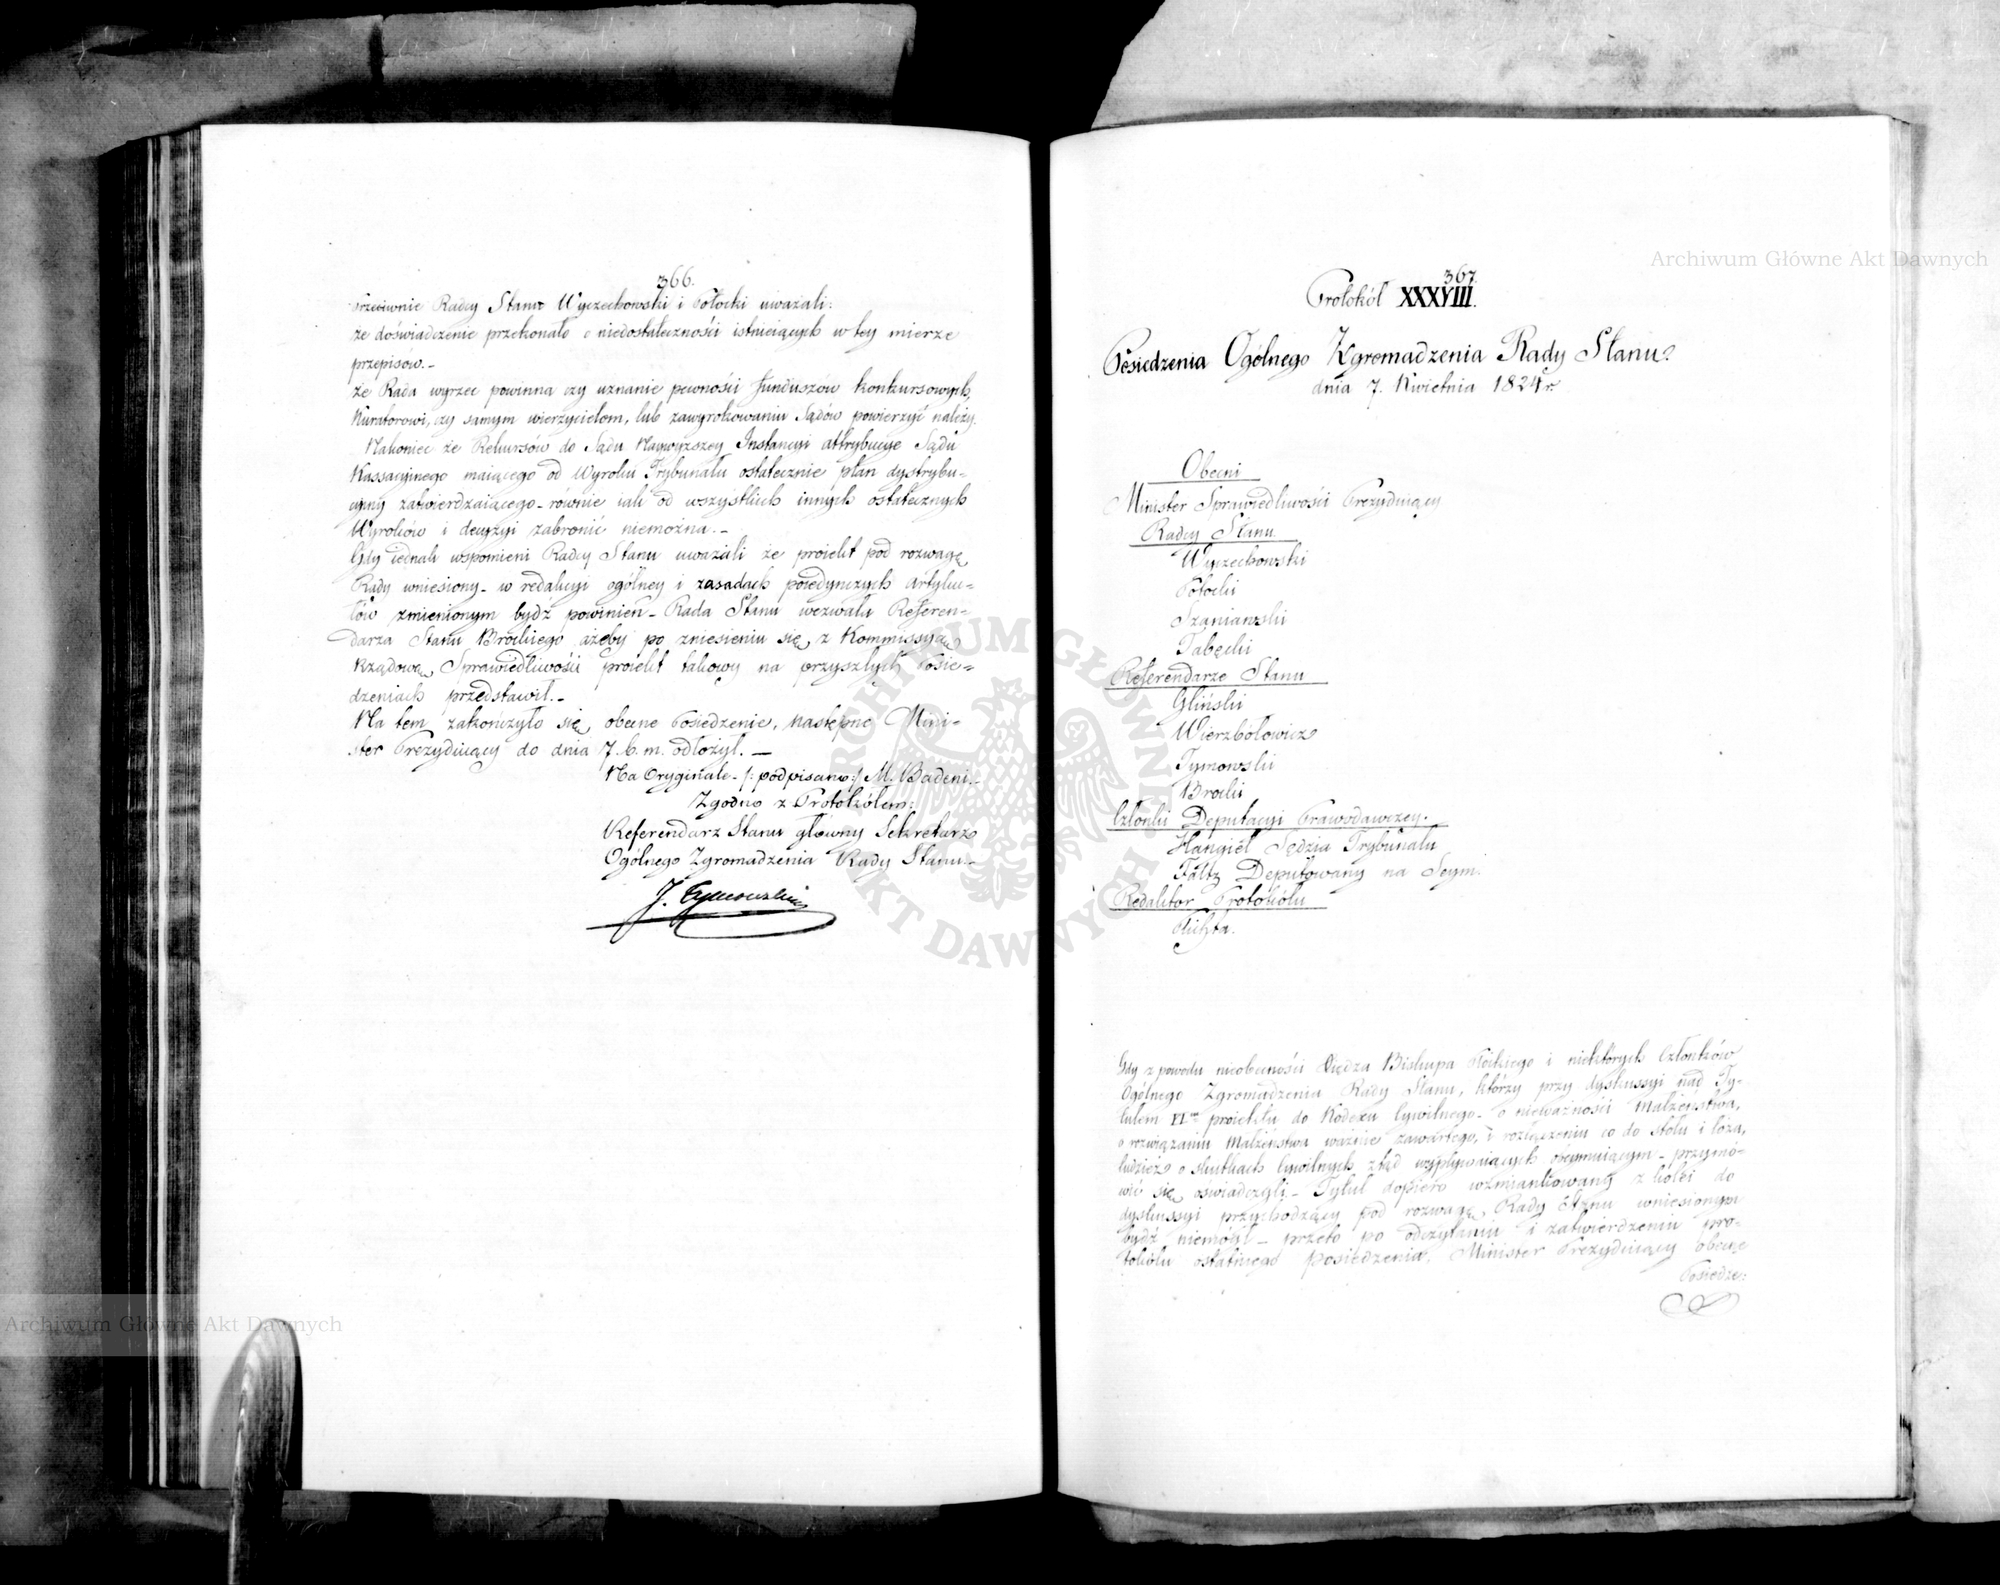 366.
Przeciwnie Radcy Stanu Wyczechowski i Potocki uważali:
że doświadczenie przekonało o niedostateczności istnieiących w tey mierze
przepisów.-
że Rada wyrzec powinna czy uznanie pewności funduszów konkursowych,
Kuratorowi, czy samym wierzycielom, lub zawyrokowaniu Sądów powierzyć należy.
Nakoniec że Rekursów do Sądu Naywyższey Instancyi attrybucye Sądu
Kassacyinego maiącego od Wyroku Trybunału ostatecznie plan dystrybu-
cyiny zatwierdzaiącego - równie iak od wszystkich innych ostatecznych
Wyroków i decyzyi zabronić niemożna.-
Gdy iednak wspomieni Radcy Stanu uważali że proiekt pod rozwagę
Rady wniesiony - w redakcyi ogólney i zasadach poiedynczych Artyku-
łów zmienionym bydź powinien - Rada Stanu wezwała Referen-
darza Stanu Brockiego ażeby po zniesieniu się z Kommissyą
Rządową Sprawiedliwości proiekt takowy na przyszłych Posie-
dzeniach przedstawił.-
Na tem zakończyło się obecne Posiedzenie, następne Mini-
ster Prezyduiący do dnia 7. b. m. odłożył. -
Na Oryginale - /: podpisano :/ M. Badeni.-
Zgodno z Protokółem:
Referendarz Stanu główny Sekretarz
Ogólnego Zgromadzenia Rady Stanu.-
J. Tymowski
367.
Protokół XXXVIII.
Posiedzenia Ogólnego Zgromadzenia Rady Stanu
dnia 7. Kwietnia 1824 r.
Obecni
Minister Sprawiedliwości Prezyduiący
Radcy Stanu
Wyczechowski
Potocki
Szaniawski
Tabęcki
Referendarze Stanu
Gliński
Wierzbołowicz
Tymowski
Brocki
Członki Deputacyi Prawodawczey.
Hangiel Sędzia Trybunału
Faltz Deputowany na Seym.
Redaktor Protokółu
Flichta.
Gdy z powodu nieobecności Xiędza Biskupa Płockiego i niektórych Członków
Ogólnego Zgromadzenia Rady Stanu, którzy przy dyskussyi nad Ty-
tułem proiektu do Kodexu Cywilnego - o nieważności Małżeństwa,
o rozwiązaniu Małżeństwa ważnie zawartego, i rozłączeniu co do stołu i łoża,
tudzież o skutkach Cywilnych ztąd wypływaiących obeymuiącym - przymó-
wić się oświadczyli - Tytuł dopiero wzmiankowany z kolei do
dyskussyi przychodzący pod rozwagę Rady Stanu wniesionym
bydź niemógł - przeto po odczytaniu i zatwierdzeniu pro-
tokółu ostatniego posiedzenia, Minister Prezyduiący obecne
Posiedze:
Archiwum Główne Akt Dawnych
Archiwum Główne Akt Dawnych
ARCHIWUM GŁÓWNE AKT DAWNYCH